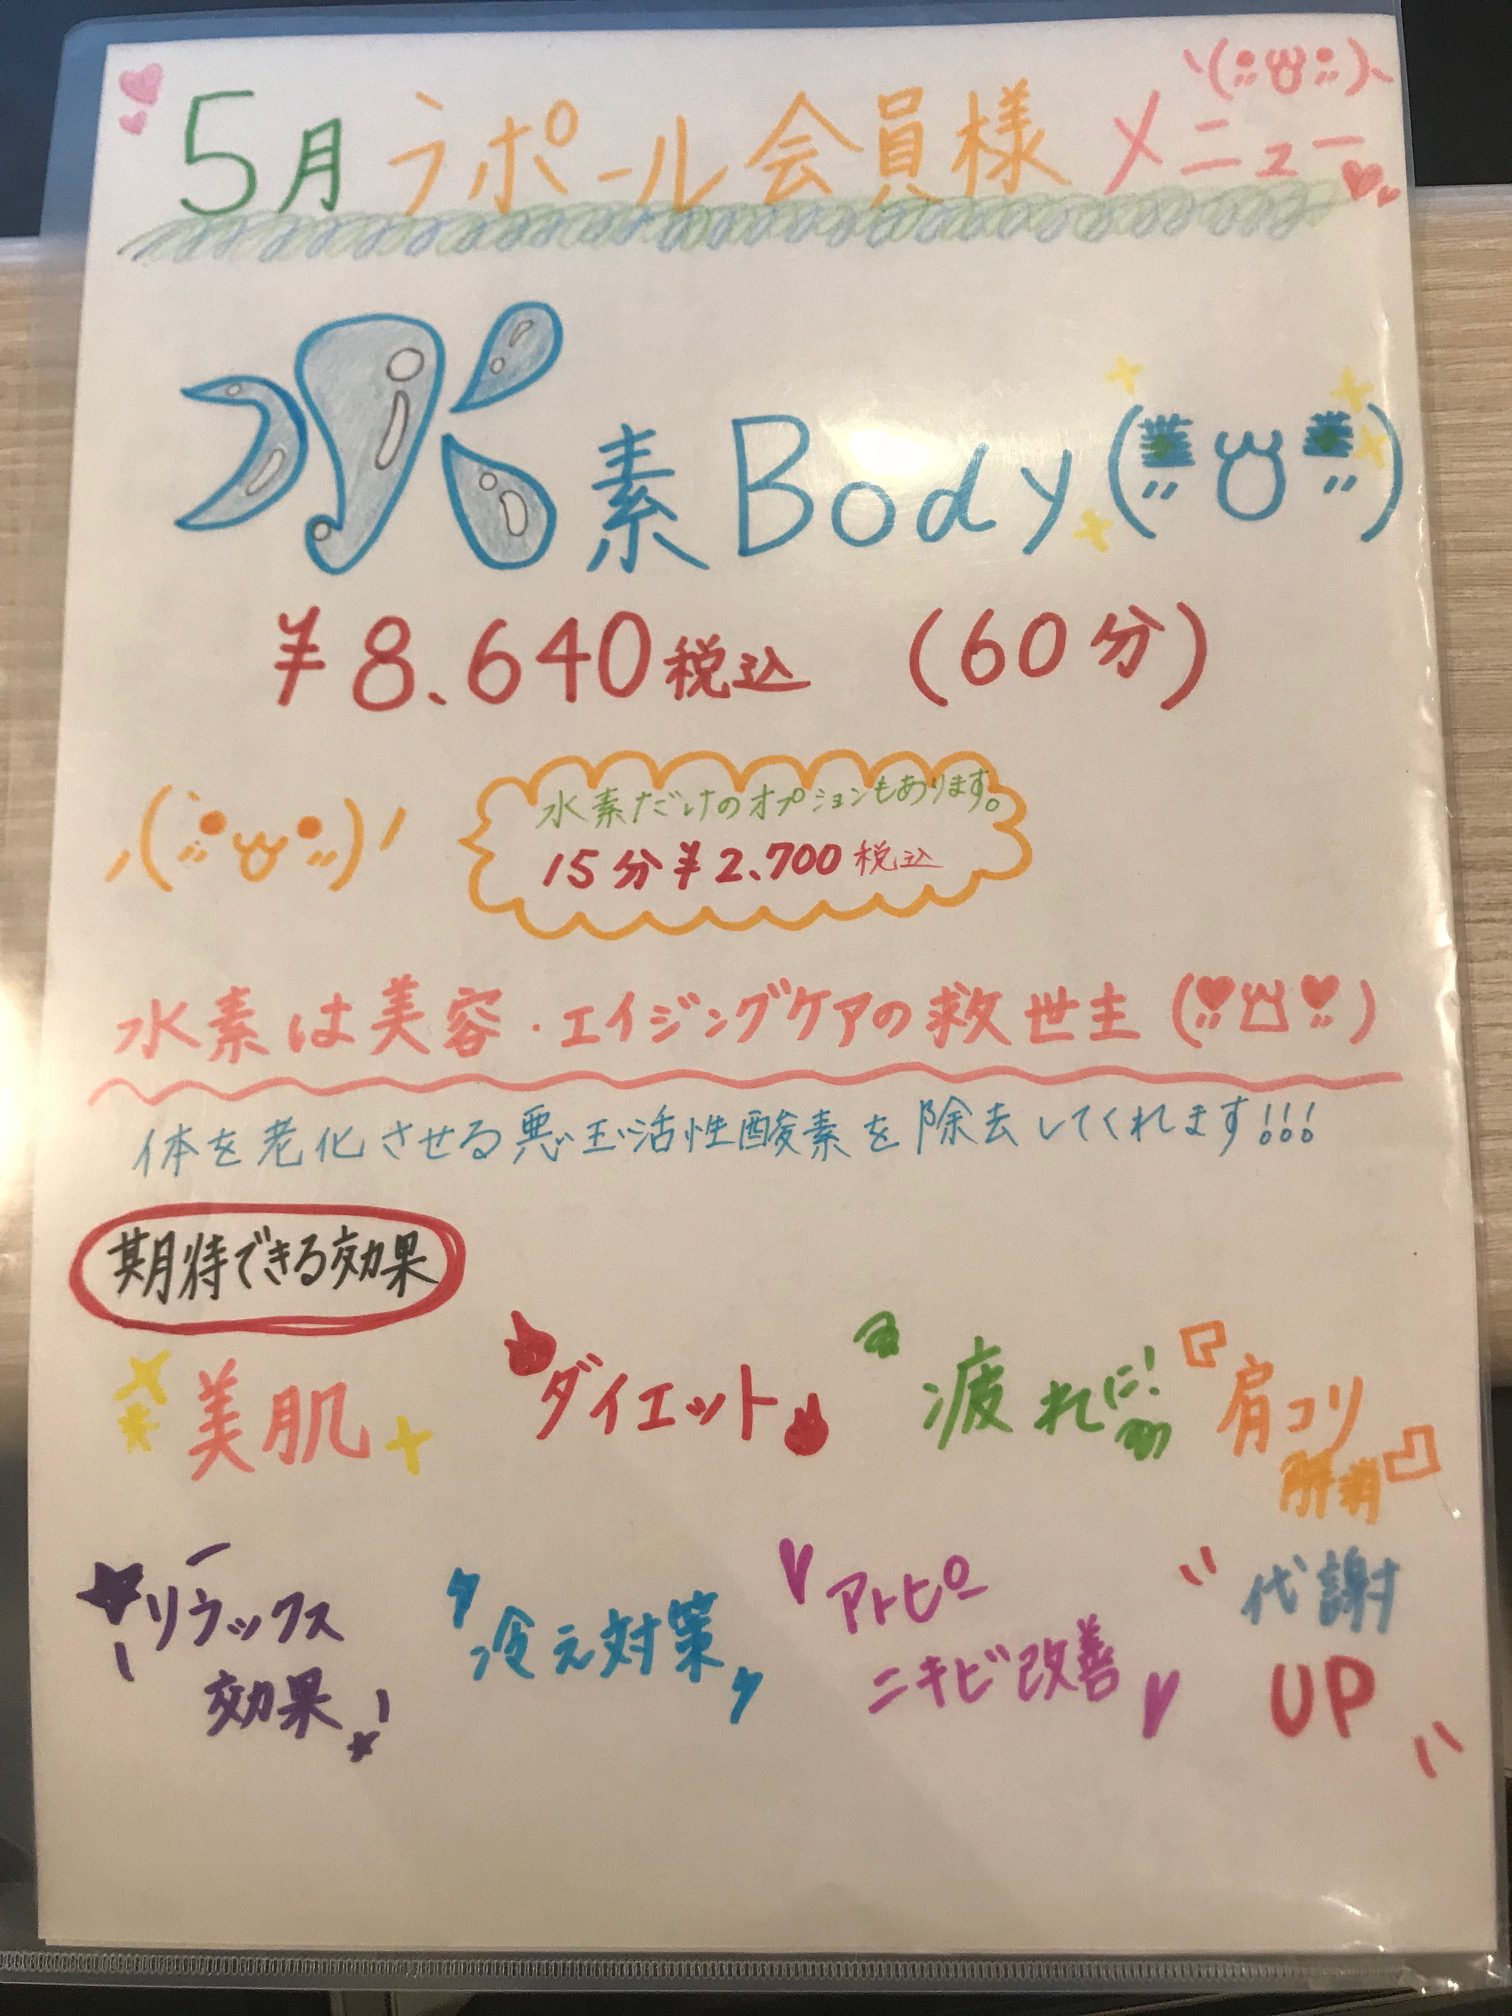 5月 ラポール会員様 メニュー
水素Body
¥8.640税込 (60分)
水素だけのオプションもあります。
15分¥2.700税込
水素は美容・エイジングケアの救世主
体を老化させる悪玉活性酸素を除去してくれます!!!
期待できる効果
美肌
ダイエット
疲れに!
肩コリ
解消
リラックス
効果
冷え対策
アトピー
ニキビ改善
代謝
UP